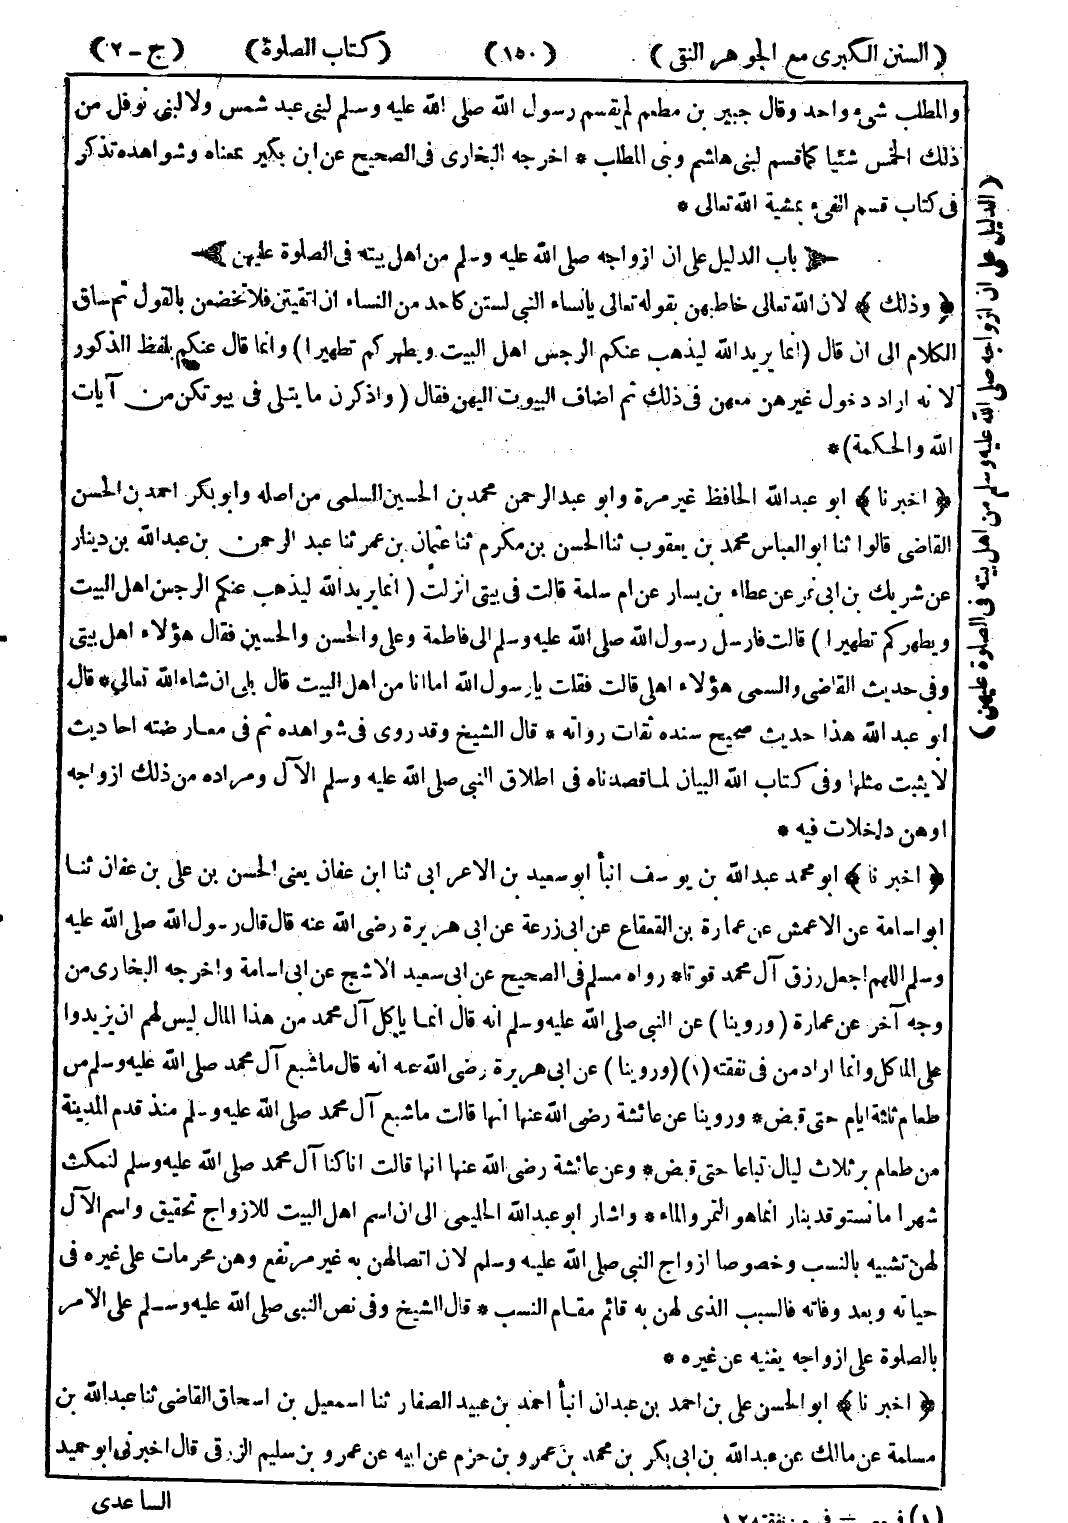 (السنن الكبرى مع الجوهر النقى) (١٥٠) (كتاب الصلوة) (ج-٢)
والمطلب شىء واحد وقال جبير بن مطعم لم يقسم رسول الله صلى الله عليه وسلم لبنى عبد شمس ولا لبنى نوفل من
ذلك الخمس شيئا كما قسم لبنى هاشم وبنى المطلب * اخرجه البخارى فى الصحيح عن ابن بكير بمعناه وشواهده تذكر
فى كتاب قسم الفىء بمشية الله تعالى *
باب الدليل على ان ازواجه صلى الله عليه وسلم من اهل بيته فى الصلوة عليهن
﴿ وذلك ﴾ لان الله تعالى خاطبهن بقوله تعالى يانساء النبى لستن كاحد من النساء ان اتقيتن فلا تخضعن بالقول ثم ساق
الكلام الى ان قال (انما يريد الله ليذهب عنكم الرجس اهل البيت ويطهركم تطهيرا) وانما قال عنكم بلفظ الذكور
لانه اراد دخول غيرهن معهن فى ذلك ثم اضاف البيوت اليهن فقال (واذكرن ما يتلى فى بيوتكن من آيات
الله والحكمة) *
﴿ اخبرنا ﴾ ابو عبدالله الحافظ غير مرة وابو عبدالرحمن محمد بن الحسين السلمى من اصله وابو بكر احمد بن الحسن
القاضى قالوا ثنا ابو العباس محمد بن يعقوب ثنا الحسن بن مكرم ثنا عثمان بن عمر ثنا عبد الرحمن بن عبدالله بن دينار
عن شريك بن ابى نمر عن عطاء بن يسار عن ام سلمة قالت فى بيتى انزلت (انما يريد الله ليذهب عنكم الرجس اهل البيت
ويطهركم تطهيرا) قالت فارسل رسول الله صلى الله عليه وسلم الى فاطمة وعلى والحسن والحسين فقال هؤلاء اهل بيتى
وفى حديث القاضى والسمى هؤلاء اهلى قالت فقلت يا رسول الله اما انا من اهل البيت قال بلى ان شاء الله تعالى * قال
ابو عبدالله هذا حديث صحيح سنده ثقات رواته * قال الشيخ وقد روى فى شواهده ثم فى معارضته احاديث
لا يثبت مثلها وفى كتاب الله البيان لما قصدناه فى اطلاق النبى صلى الله عليه وسلم الآل ومراده من ذلك ازواجه
اوهن داخلات فيه *
﴿ اخبرنا ﴾ ابو محمد عبدالله بن يوسف انبأ ابو سعيد بن الاعرابى ثنا ابن عفان يعنى الحسن بن على بن عفان ثنا
ابو اسامة عن الاعمش عن عمارة بن القعقاع عن ابى زرعة عن ابى هريرة رضى الله عنه قال قال رسول الله صلى الله عليه
وسلم اللهم اجعل رزق آل محمد قوتا * رواه مسلم فى الصحيح عن ابى سعيد الاشج عن ابى اسامة واخرجه البخارى من
وجه آخر عن عمارة (وروينا) عن النبى صلى الله عليه وسلم انه قال انما يأكل آل محمد من هذا المال ليس لهم ان يزيدوا
على المأكل وانما اراد من فى نفقته (١) (وروينا) عن ابى هريرة رضى الله عنه انه قال ما شبع آل محمد صلى الله عليه وسلم من
طعام ثلثة ايام حتى قبض * وروينا عن عائشة رضى الله عنها انها قالت ما شبع آل محمد صلى الله عليه وسلم منذ قدم المدينة
من طعام بر ثلاث ليال تباعا حتى قبض * وعن عائشة رضى الله عنها انها قالت انا كنا آل محمد صلى الله عليه وسلم لنمكث
شهرا ما نستوقد بنار انما هو التمر والماء * واشار ابو عبدالله الحليمى الى ان اسم اهل البيت للازواج تحقيق واسم الآل
لهن تشبيه بالنسب وخصوصا ازواج النبى صلى الله عليه وسلم لان اتصالهن به غير مرتفع وهن محرمات على غيره فى
حياته وبعد وفاته فالسبب الذى لهن به قائم مقام النسب * قال الشيخ وفى نص النبى صلى الله عليه وسلم على الامر
بالصلوة على ازواجه يغنيه عن غيره *
﴿ اخبرنا ﴾ ابو الحسن على بن احمد بن عبدان انبأ احمد بن عبيد الصفار ثنا اسمعيل بن اسحاق القاضى ثنا عبدالله بن
مسلمة عن مالك عن عبدالله بن ابى بكر بن محمد بن عمرو بن حزم عن ابيه عن عمرو بن سليم الزرقى قال اخبرنى ابو حميد
الساعدى
(الدليل على ان ازواجه صلى الله عليه وسلم من اهل بيته فى الصلوة عليهن)